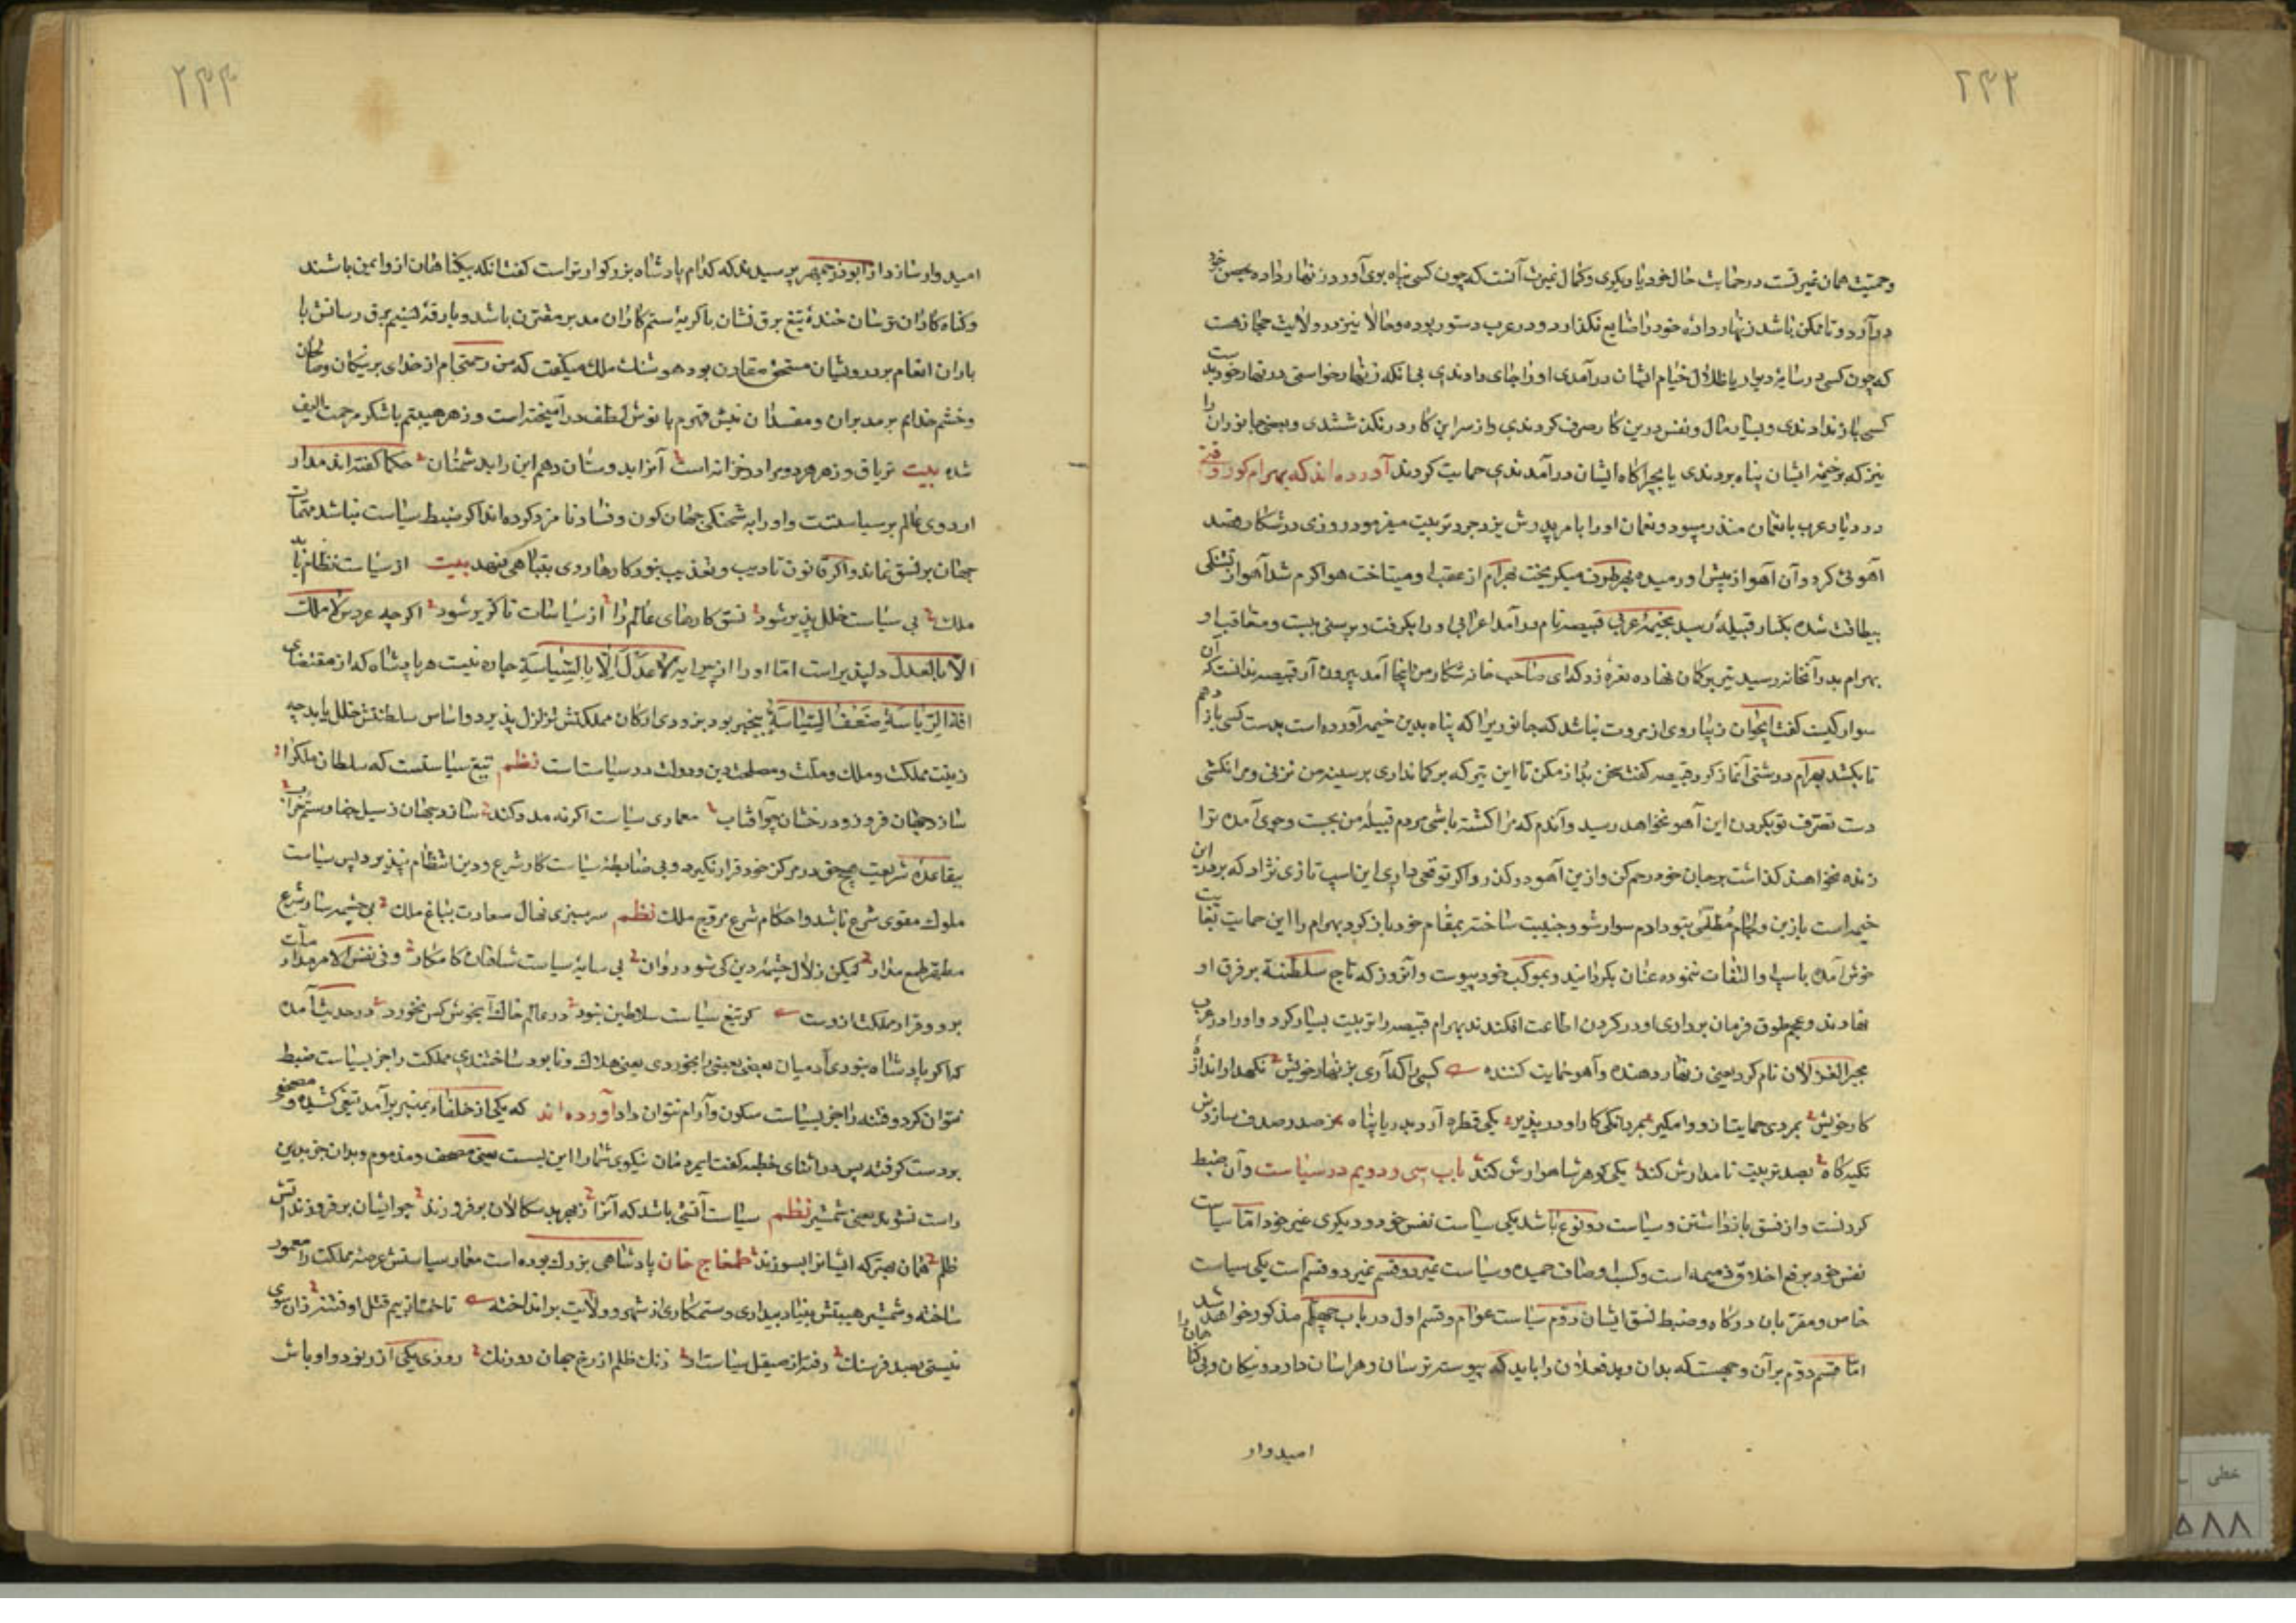 ۲۴۳
وحمیت همان غیرتست در حمایت حال خود یا دیگری وکمال غیرت آنست که چون کسی پناه بوی آورد زنهار داده بحبس خود
درآرد و تا ممکن باشد زنهار داده خود را ضایع نکذارد و در عرب دستور بوده وحالا نیز در ولایت حجاز هست
که چون کسی در سایه دیوار یا ظلال خیام ایشان درآمدی او را جای دادندی بی انکه زنهار خواستی در زنهار خود
کسی باز ندادندی وبسیار مال ونفس درین کار صرف کردندی و از سر این کار در نکذشتندی وبعضی جانوران را
نیز که بخیمه ایشان پناه بردندی یا بچراکاه ایشان درآمدندی حمایت کردند آورده اند که بهرام کور وقتی
در دیار عرب با نعمان منذر میبود ونعمان او را بامر پدرش یزدجرد تربیت میفرمود روزی در شکار قصد
آهوئی کرد وآن آهو از پیش او رمیده بهر طرف میکریخت بهرام از عقب او میتاخت هوا کرم شد آهو از تشنکی
بیطاقت شده بکنار قبیلهٔ رسید بخیمهٔ عربی قبیصه نام درآمد اعرابی او را بکرفت وبرسنی ببست ومتعاقب او
بهرام بدر آنخانه رسید تیر بر کمان نهاده نعره زد که ای صاحب خانه شکار من اینجا آمد بیرون آر قبیصه ندانست که آن
سوار کیست کفت ایجوان زیبا روی از مروت نباشد که جانوریرا که پناه بدین خیمه آورده است بدست کسی باز دهم
تا بکشد بهرام درشتی آغاز کرد قبیصه کفت سخن دراز مکن تا این تیر که بر کمان داری بر سینه من نزنی ومرا نکشی
دست تصرف تو بکردن این آهو نخواهد رسید وآندم که مرا کشته باشی مردم قبیلهٔ من بجست وجوی آمده ترا
زنده نخواهند کذاشت بر جان خود رحم کن وازین آهو درکذر واکر توقعی داری این اسپ تازی نژاد که بر در این
خیمه است با زین ولجام مطلی بتو دادم سوار شو وجنیبت ساخته بمقام خود باز کرد بهرام را این حمایت بغایت
خوش آمده باسپ او التفات ننموده عنان بکردانید وبموکب خود پیوست وآنروز که تاج سلطنة بر فرق او
نهادند وعجم طوق فرمان برداری او در کردن اطاعت افکندند بهرام قبیصه را تربیت بسیار کرد واو را در عرب
مجیر الغزلان نام کرد یعنی زنهار دهنده وآهو حمایت کننده کسی را که آری بزنهار خویش نکهدار اندازهٔ
کار خویش بمردی حمایت از و وامکیر بمردانکی کار او درپذیر یکی قطره آرد بدریا پناه بصدر صدف سازدش
تکیه کاه بصد تربیت نامدارش کند یکی کوهر شاهوارش کند باب سی ودویم در سیاست وآن ضبط
کردنست واز فسق باز داشتن وسیاست دو نوع باشد یکی سیاست نفس خود ودیکری غیر خود اما سیاست
نفس خود برفع اخلاق ذمیمه است وکسب اوصاف حمیده وسیاست غیر دو قسم غیر دو قسم است یکی سیاست
خاص ومقربان درکاه وضبط نسق ایشان دوم سیاست عوام وقسم اول در باب چهلم مذکور خواهد شد
اما قسم دوم بر آن وجهست که بدان وبدفعلان را باید که پیوسته ترسان وهراسان دارد ونیکان وبی کناهان را
امیدوار
۲۴۴
امیدوار سازد از ابوذرجمهر پرسیدند که کدام پادشاه بزرکوارتر است کفت انکه بیکناهان از وایمن باشند
وکناه کاران ترسان خندهٔ تیغ برق نشان با کریهٔ ستم کاران مدبر مقترن باشد وبارقهٔ خشم برق رسانش با
باران انعام بر درویشان مستحق مقارن بود هوشنک ملک میکفت که من رحمتی ام از خدای بر نیکان وصالحان
وخشم خدایم بر مدبران ومفسدان نیش قهرم با نوش لطف درآمیخته است وزهر هیبتم با شکر مرحمت الیف
شده بیت تریاق وزهر هر دو مرا در خزانه است آنرا بدوستان دهم این را بدشمنان حکما کفته اند مدار
اردوی عالم بر سیاستست واو را به شحنکی جهان کون وفساد نامزد کرده اند اکر ضبط سیاست نباشد مهمات
جهان بر نسق نماند واکر قانون تادیب وتعذیب نبود کارها روی بتباهی نهد بیت از سیاست نظام یابد
ملک بی سیاست خلل پذیر شود نسق کارهای عالم را از سیاسات ناکزیر شود اکرچه عروس لا ملک
الا بالعدل دلپذیر است اما او را از پیرایه لا عدل الا بالسیاسة چاره نیست هر پادشاه که از مقتضای
افة الریاسة ضعف السیاسة بیخبر بود بزودی ارکان مملکتش تزلزل پذیرد واساس سلطنتش خلل یابد چه
زینت مملکت وملک وملت ومصلحت دین ودولت در سیاستست نظم تیغ سیاستست که سلطان ملک را
سازد جهان فروز ودرخشان چو آفتاب معماری سیاست اکر نه مدد کند سازد جهان ز سیل جفا وستم خراب
بیقاعده شریعت هیچ حق در مرکز خود قرار نکیرد وبی ضابطهٔ سیاست کار شرع ودین انتظام نپذیرد پس سیاست
ملوک مقوی شرع باشد واحکام شرع مروج ملک نظم سرسبزی نهال سعادت بباغ ملک بی چشمه سار شرع
مطهر طمع مدار لیکن زلال چشمهٔ دین کی شود روان بی سایهٔ سیاست شاهان کامکار وفی نفس الامر مدار ملت
بر وقرار مملکت ازوست کر تیغ سیاست سلاطین نبود در عالم خاک آب خوش کس نخورد در حدیث آمده
که اکر پادشاه نبودی آدمیان بعضی بعضی را بخوردی یعنی هلاک ونابود ساختندی مملکت را جز بسیاست ضبط
نتوان کرد وفتنه را جز بسیاست سکون وآرام نتوان داد آورده اند که یکی از خلفاء بمنبر برآمد تیغی کشیده ومصحفی
بر دست کرفته پس در اثنای خطبه کفت ایمردمان نیکوی شما را این بست یعنی مصحف ومذموم وبدان جز بدین
راست نشوید یعنی شمشیر نظم سیاست آتشی باشد که آنرا ز بهر بدسکالان برفروزند چو ایشان برفروزند آتش
ظلم همان بهتر که ایشانرا بسوزند طمغاج خان پادشاهی بزرک بوده است معمار سیاستش عرصهٔ مملکت را معمور
ساخته وشمشیر هیبتش بنیاد بیدادی وستمکاری از شهر وولایت برانداخته تاخت از بیم قتل او فتنه زان سوی
نیستی بصد فرسنک رفته از صیقل سیاست او زنک ظلم از رخ جهان دو رنک روزی یکی از رنود واوباش
خطی
۵۸۸